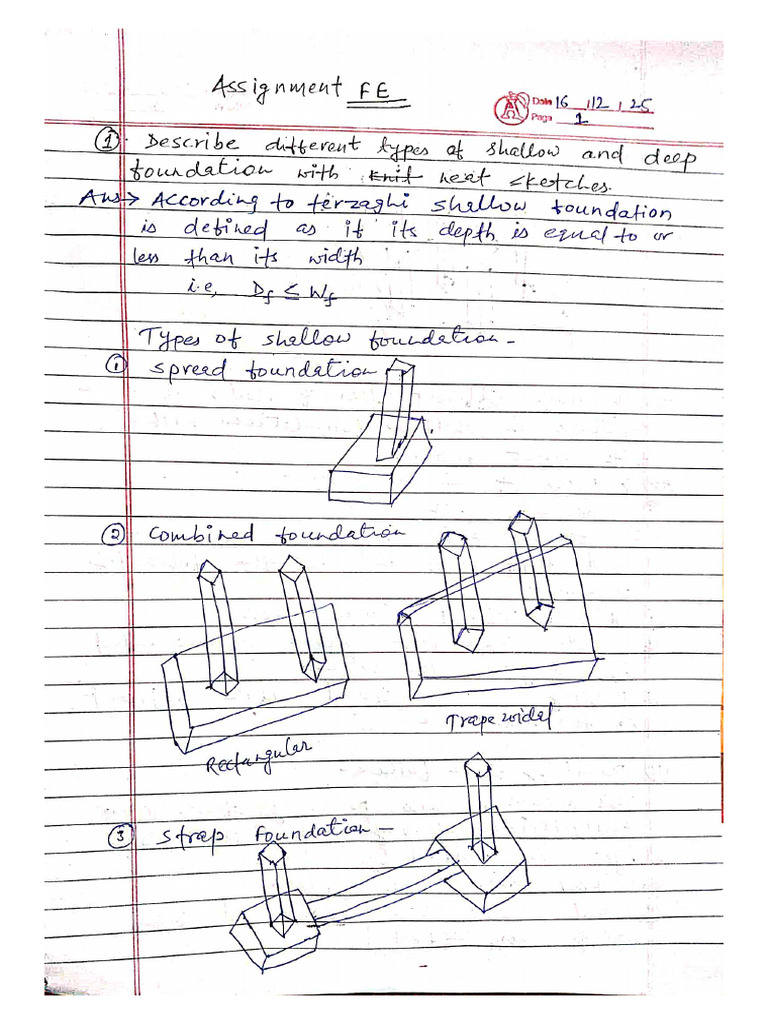 Assignment FE
Date 16 , 12 , 25
Page 1
① Describe different types of shallow and deep
foundation with knit neat sketches.
Ans→ According to terzaghi shallow foundation
is defined as if its depth is equal to or
less than its width
i.e, Df ≤ Wf
Types of shallow foundation -
① Spread foundation
② Combined foundation
Rectangular
Trapezoidal
③ Strap foundation -